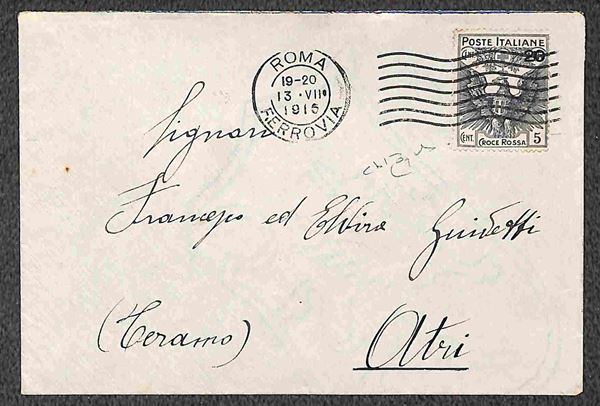 ROMA
19-20
13 · VII
1915
FERROVIA
POSTE ITALIANE
20
CENT. 5
CROCE ROSSA
Signori
ed Elvira Guidetti
(Teramo)
Atri